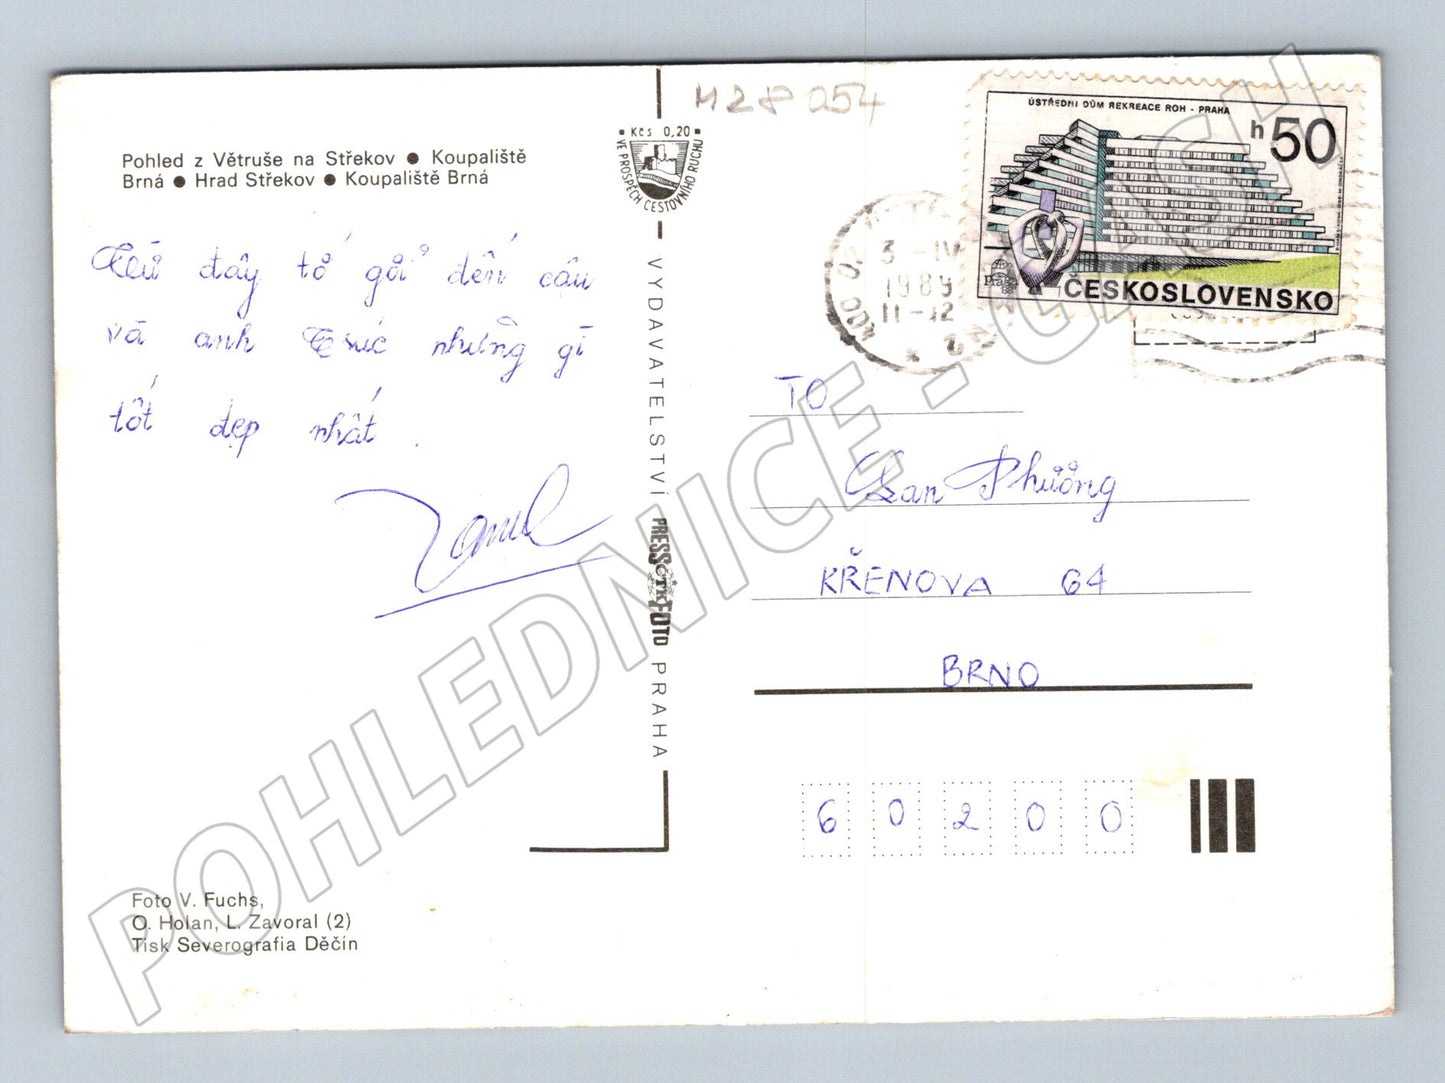 M28054
Kčs 0,20
VE PROSPĚCH CESTOVNÍHO RUCHU
ÚSTŘEDNÍ DŮM REKREACE ROH - PRAHA
h 50
Praga
ČESKOSLOVENSKO
3 -IV
1989
11-12
Pohled z Větruše na Střekov ● Koupaliště
Brná ● Hrad Střekov ● Koupaliště Brná
đây tớ gởi đến cậu
và anh nhưng gì
tốt đẹp nhất .
VYDAVATELSTVÍ PRESSFOTO PRAHA
ČTK
TO
Lan Phương
KŘENOVA 64
BRNO
6 0 2 0 0
Foto V. Fuchs,
O. Holan, L. Zavoral (2)
Tisk Severografia Děčín
POHLEDNICE - CASH